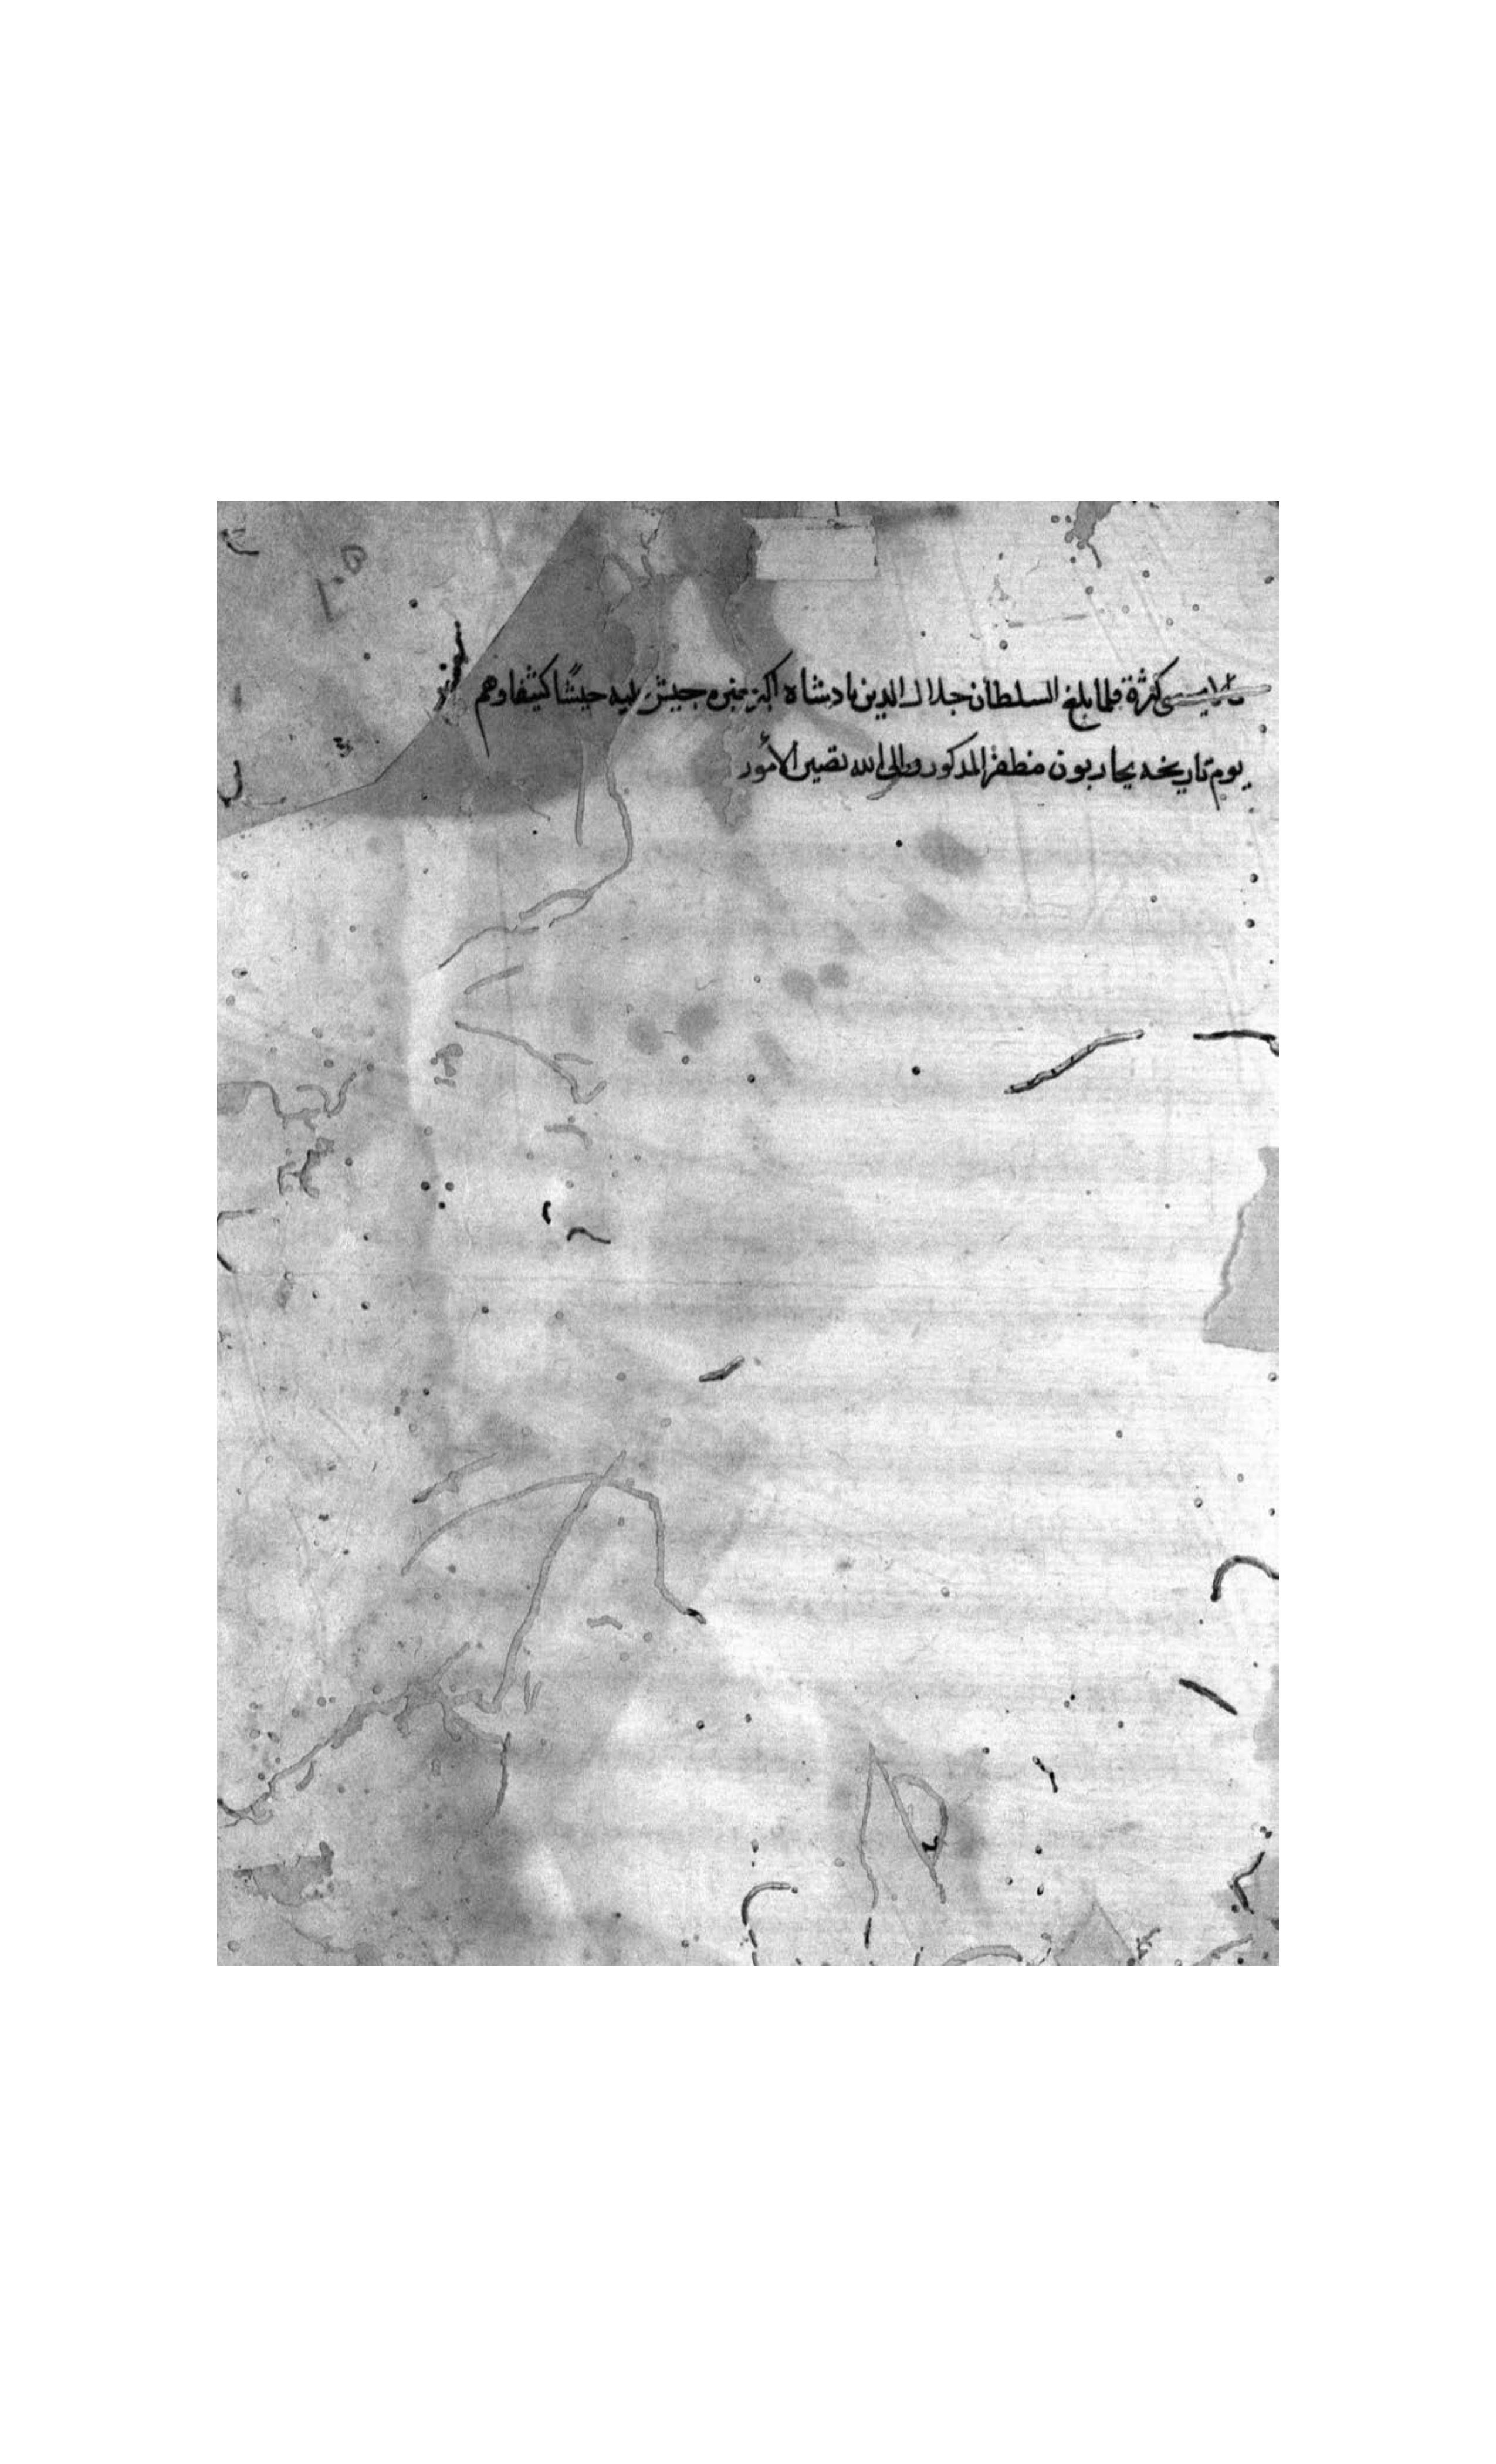 ما لا يحصى كثرة فلما بلغ السلطان جلال الدين بادشاه اكبر بخبره جيش إليه جيشًا كثيفا وهم
يوم تاريخه يحاربون مظفر المذكور والى الله تصير الأمور